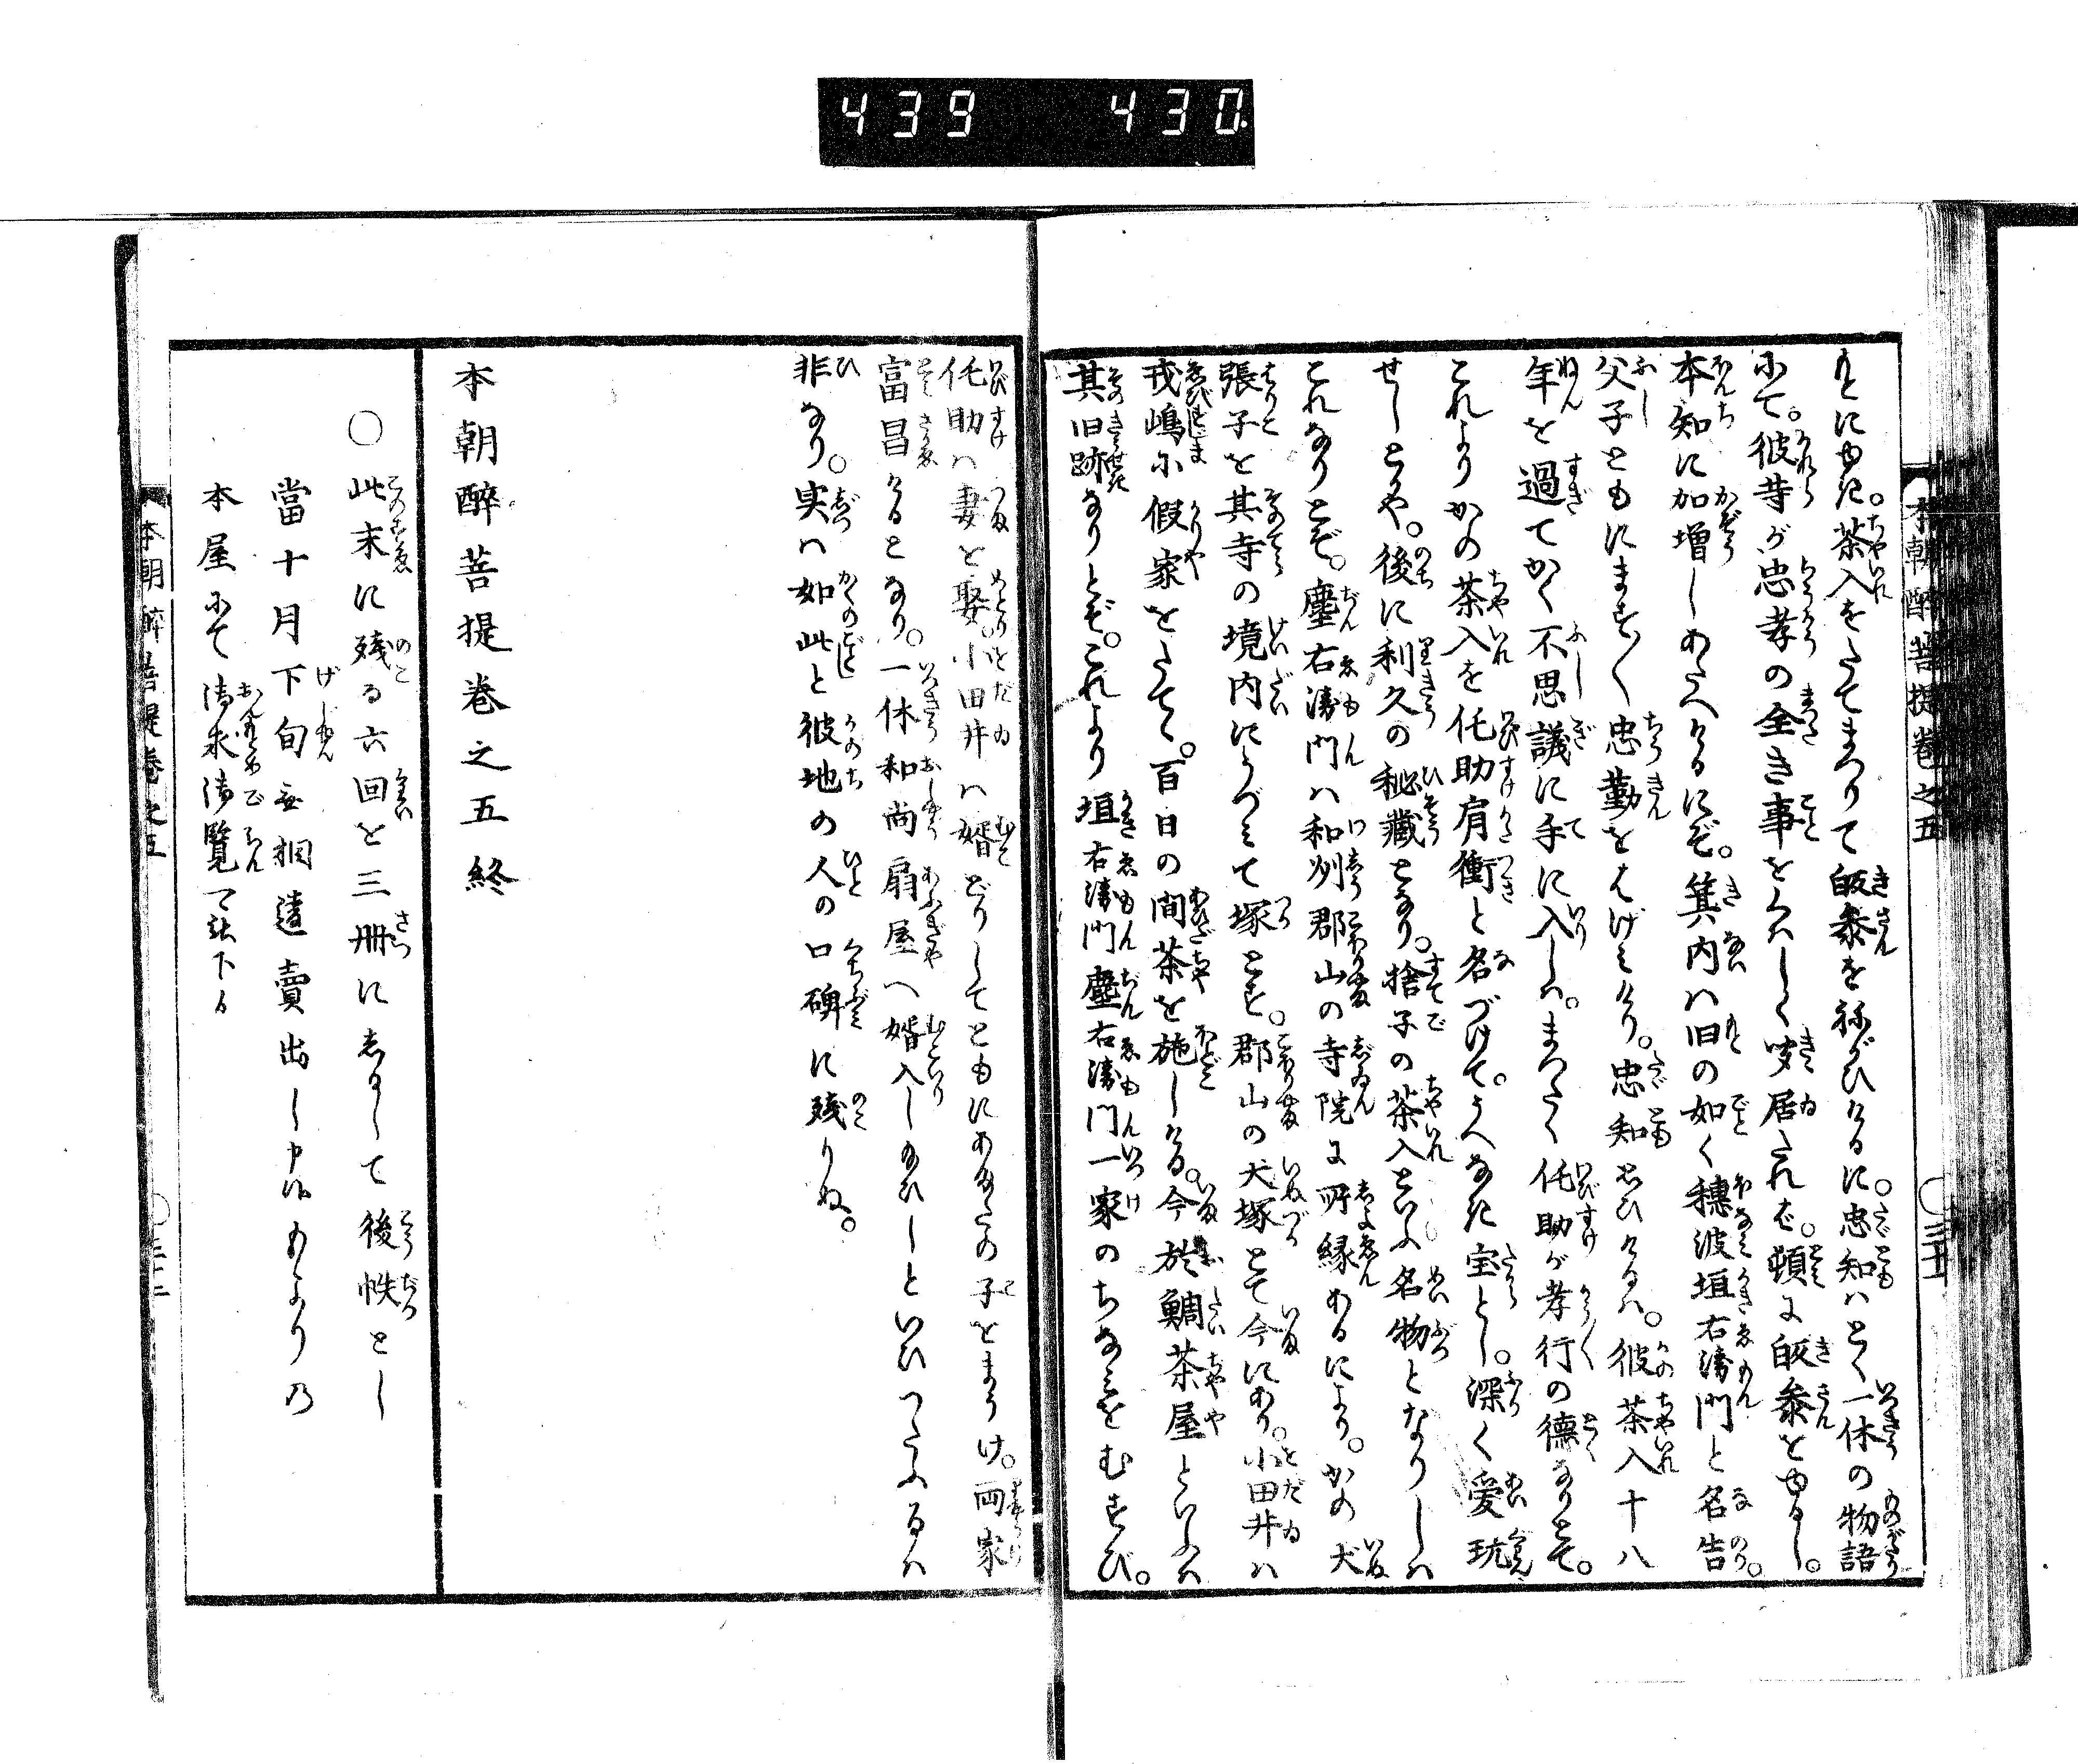 439 430
もとにゆき。茶入をたてまつりて皈参を祢がひけるに。忠知ハとく一休の物語
にて。彼等が忠孝の全き事をくハしく聞居たれば。頓に皈参をゆるし。
本知に加増しあたへけるにぞ。箕内ハ旧の如く穂波垣右衛門と名告。
父子ともにます〳〵忠勤をはげミけり。忠知思ひけるハ。彼茶入十八
年を過てかく不思議に手に入しハ。まつたく侘助が孝行の徳なりとて。
これよりかの茶入を侘助肩衝と名づけて。うへなき宝とし。深く愛玩
せしとかや。後に利久の秘蔵となり。捨子の茶入といふ名物となりしハ
これなりとぞ。塵右衛門ハ和州郡山の寺院に所縁あるにより。かの犬
張子を其寺の境内にうづミて塚とす。郡山の犬塚とて今にあり。小田井ハ
戎嶋に假家をたて。百日の間茶を施しける。今於鯛茶屋といふハ
其旧跡なりとぞ。これより垣右衛門塵右衛門一家のちなミをむすび。
侘助ハ妻を娶。小田井ハ婿どりしてともにあまたの子をまうけ。両家
富昌けるとなり。一休和尚扇屋へ婿入したまひしといひつたふるハ
非なり。実ハ如此と彼地の人の口碑に残りぬ。
本朝醉菩提巻之五終
○此末に残る六回を三冊にしるして後帙とし
當十月下旬無相違賣出し申候あより乃
本屋にて御求御覧可被下候
本朝醉菩提巻之五